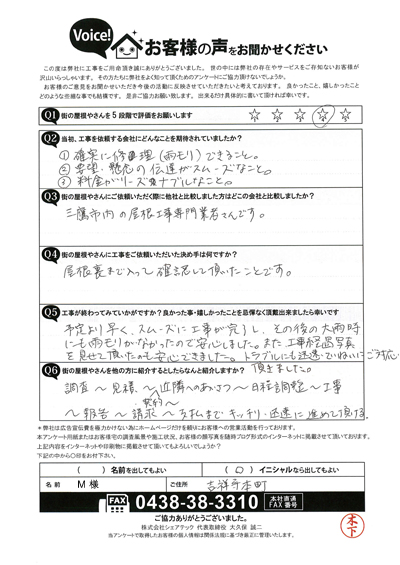 Voice!
お客様の声をお聞かせください
この度は弊社に工事をご用命頂き誠にありがとうございました。世の中には弊社の存在やサービスをご存知ないお客様が
沢山いらっしゃいます。その方たちに弊社をよく知って頂くためのアンケートにご協力頂けないでしょうか。
お客様のご意見をお聞かせいただき今後の活動に反映させていただきたいと考えております。良かったこと、嬉しかったこと
どのような些細な事でも結構です。是非ご協力お願い致します。出来るだけ具体的に書いて頂ければ幸いです。
Q1 街の屋根やさんを5段階で評価をお願いします ☆ ☆ ☆ ☆ ☆
Q2 当初、工事を依頼する会社にどんなことを期待されていましたか?
① 確実に修理(雨モリ)できること。
② 要望・懸念の伝達がスムーズなこと。
③ 料金がリーズナブルなこと。
Q3 街の屋根やさんにご依頼いただく際に他社と比較しました方はどこの会社と比較しましたか?
三鷹市内の屋根工事専門業者さんです。
Q4 街の屋根やさんに工事をご依頼いただいた決め手は何ですか?
屋根裏まで入って確認して頂いたことです。
Q5 工事が終わってみていかがですか?良かった事・嬉しかったことを忌憚なく頂戴出来ましたら幸いです
予定より早く、スムーズに工事が完了し、その後の大雨時
にも雨モリがなかったので安心しました。また、工事経過写真
を見せて頂いたのも安心できました。トラブルにも迅速でていねいにご対応
頂きました。
Q6 街の屋根やさんを他の方に紹介するとしたらなんと紹介しますか?
調査〜見積〜契約〜近隣へのあいさつ〜日程調整〜工事
〜報告〜請求〜支払まで キッチリ・迅速に進めて頂ける。
＊弊社は広告宣伝費を極力かけない為にホームページだけを頼りにお客様への営業活動を行っております。
本アンケート用紙またはお客様宅の調査風景や施工状況、お客様の顔写真を随時ブログ形式のインターネットに掲載させて頂いております。
上記内容をインターネットや印刷物に掲載させて頂いてもよろしいでしょうか?
下記の中から○印をお付け下さい。
( )名前を出してもよい (○)イニシャルなら出してもよい
名前 M様 ご住所 吉祥寺本町
FAX 0438-38-3310 本社直通 FAX番号
ご協力ありがとうございました。
株式会社シェアテック 代表取締役 大久保 誠二
当アンケートで取得したお客様の個人情報は関係法規に基づき厳正に管理いたします。
木下